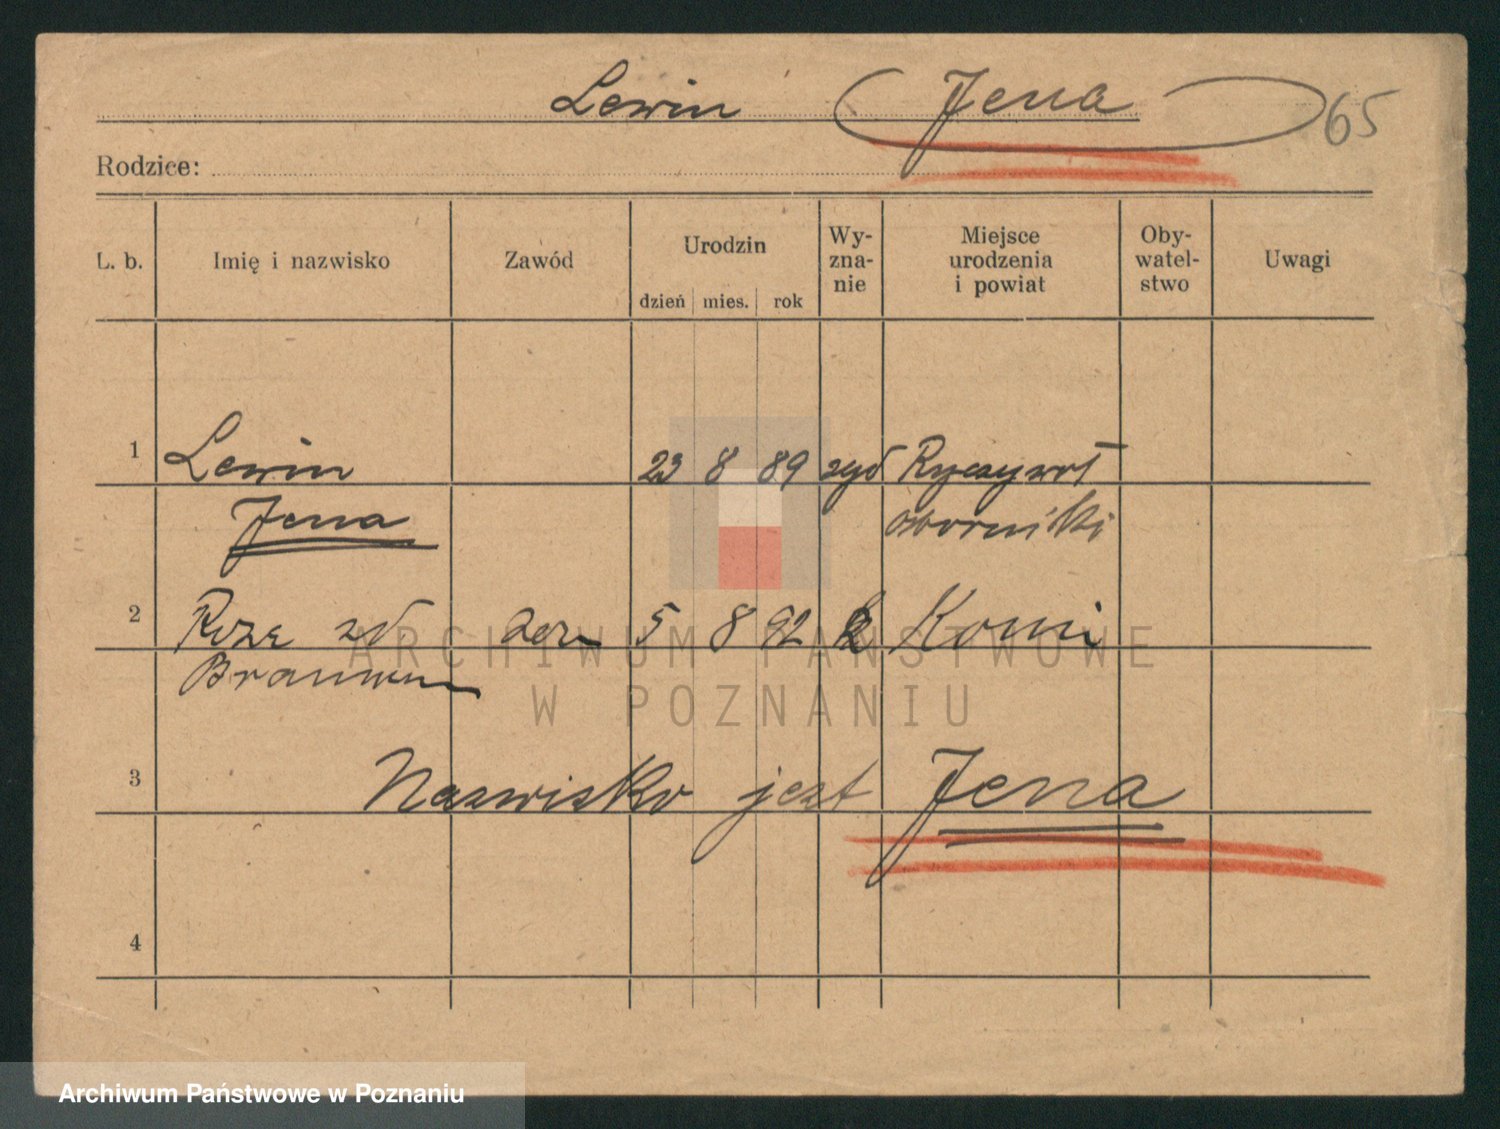 Lewin Jena 65
Rodzice:
L. b. Imię i nazwisko Zawód Urodzin dzień mies. rok Wy-zna-nie Miejsce urodzenia i powiat Oby-watel-stwo Uwagi
1 Lewin 23 8 89 żyd Ryczywół
Jena oborniki
2 Róża zd 5 8 92 Konin
3 Nazwisko jest Jena
4
ARCHIWUM PAŃSTWOWE
W POZNANIU
Archiwum Państwowe w Poznaniu